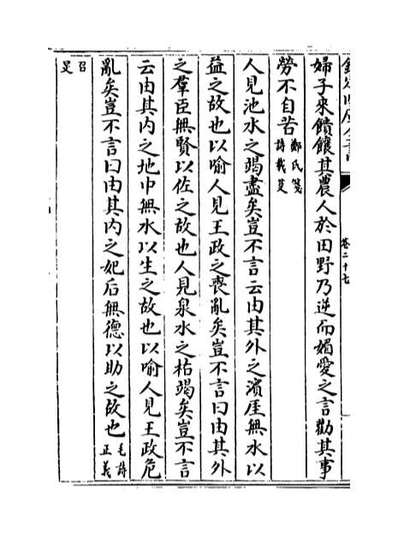 欽定四庫全書
卷二十七
婦子來饋饟其農人於田野乃逆而媚愛之言勸其事
勞不自苦鄭氏箋詩載芟
人見池水之竭盡矣豈不言云由其外之濱厓無水以
益之故也以喻人見王政之喪亂矣豈不言曰由其外
之羣臣無賢以佐之故也人見泉水之枯竭矣豈不言
云由其内之地中無水以生之故也以喻人見王政危
亂矣豈不言曰由其内之妃后無德以助之故也毛詩正義
召旻